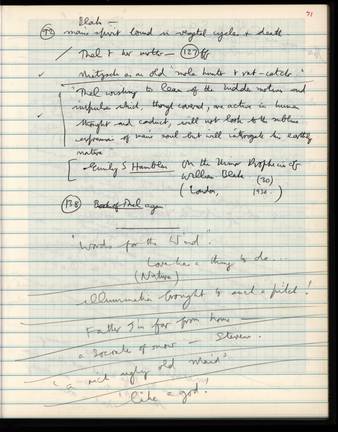 71
Blake —
92 man's spirit bound in vegetal cycle & death
/ Thel & her mother — 127 ff
✓ Nietzsche as an old "mole hunter & rat-catcher."
"Thel wishing to learn of the hidden motives and
impulses which, though covered, are active in human
✓ thought and conduct, will not look to the sublime
expression of man's soul but will interrogate his earthly
nature
[ — Emily S Hamblen On the Minor Prophecies of
William Blake
(London, 1930.)
128 Book of Thel again
"Words for the Wind".
Love has a thing to do...
(Nature)
illumination brought to such a pitch!
Father I'm far from home —
a Socrates of snow — Stevens.
"a rich ugly old maid"
"like a god!